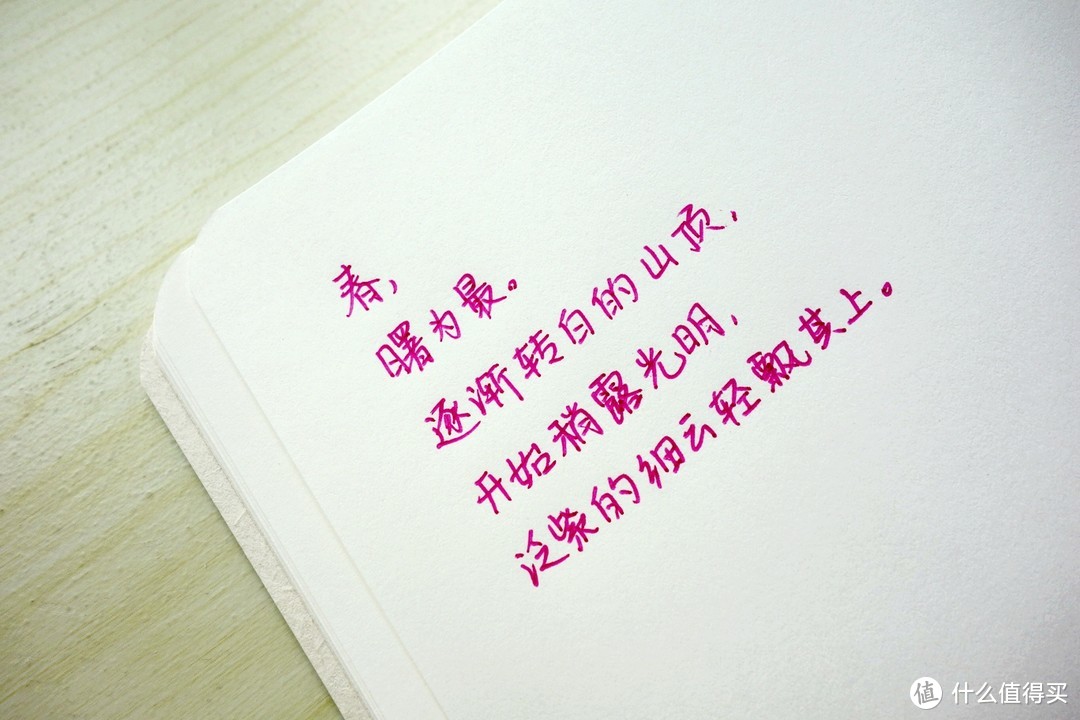 春,
曙为最。
逐渐转白的山顶,
开始稍露光明,
泛紫的细云轻飘其上。
值 什么值得买